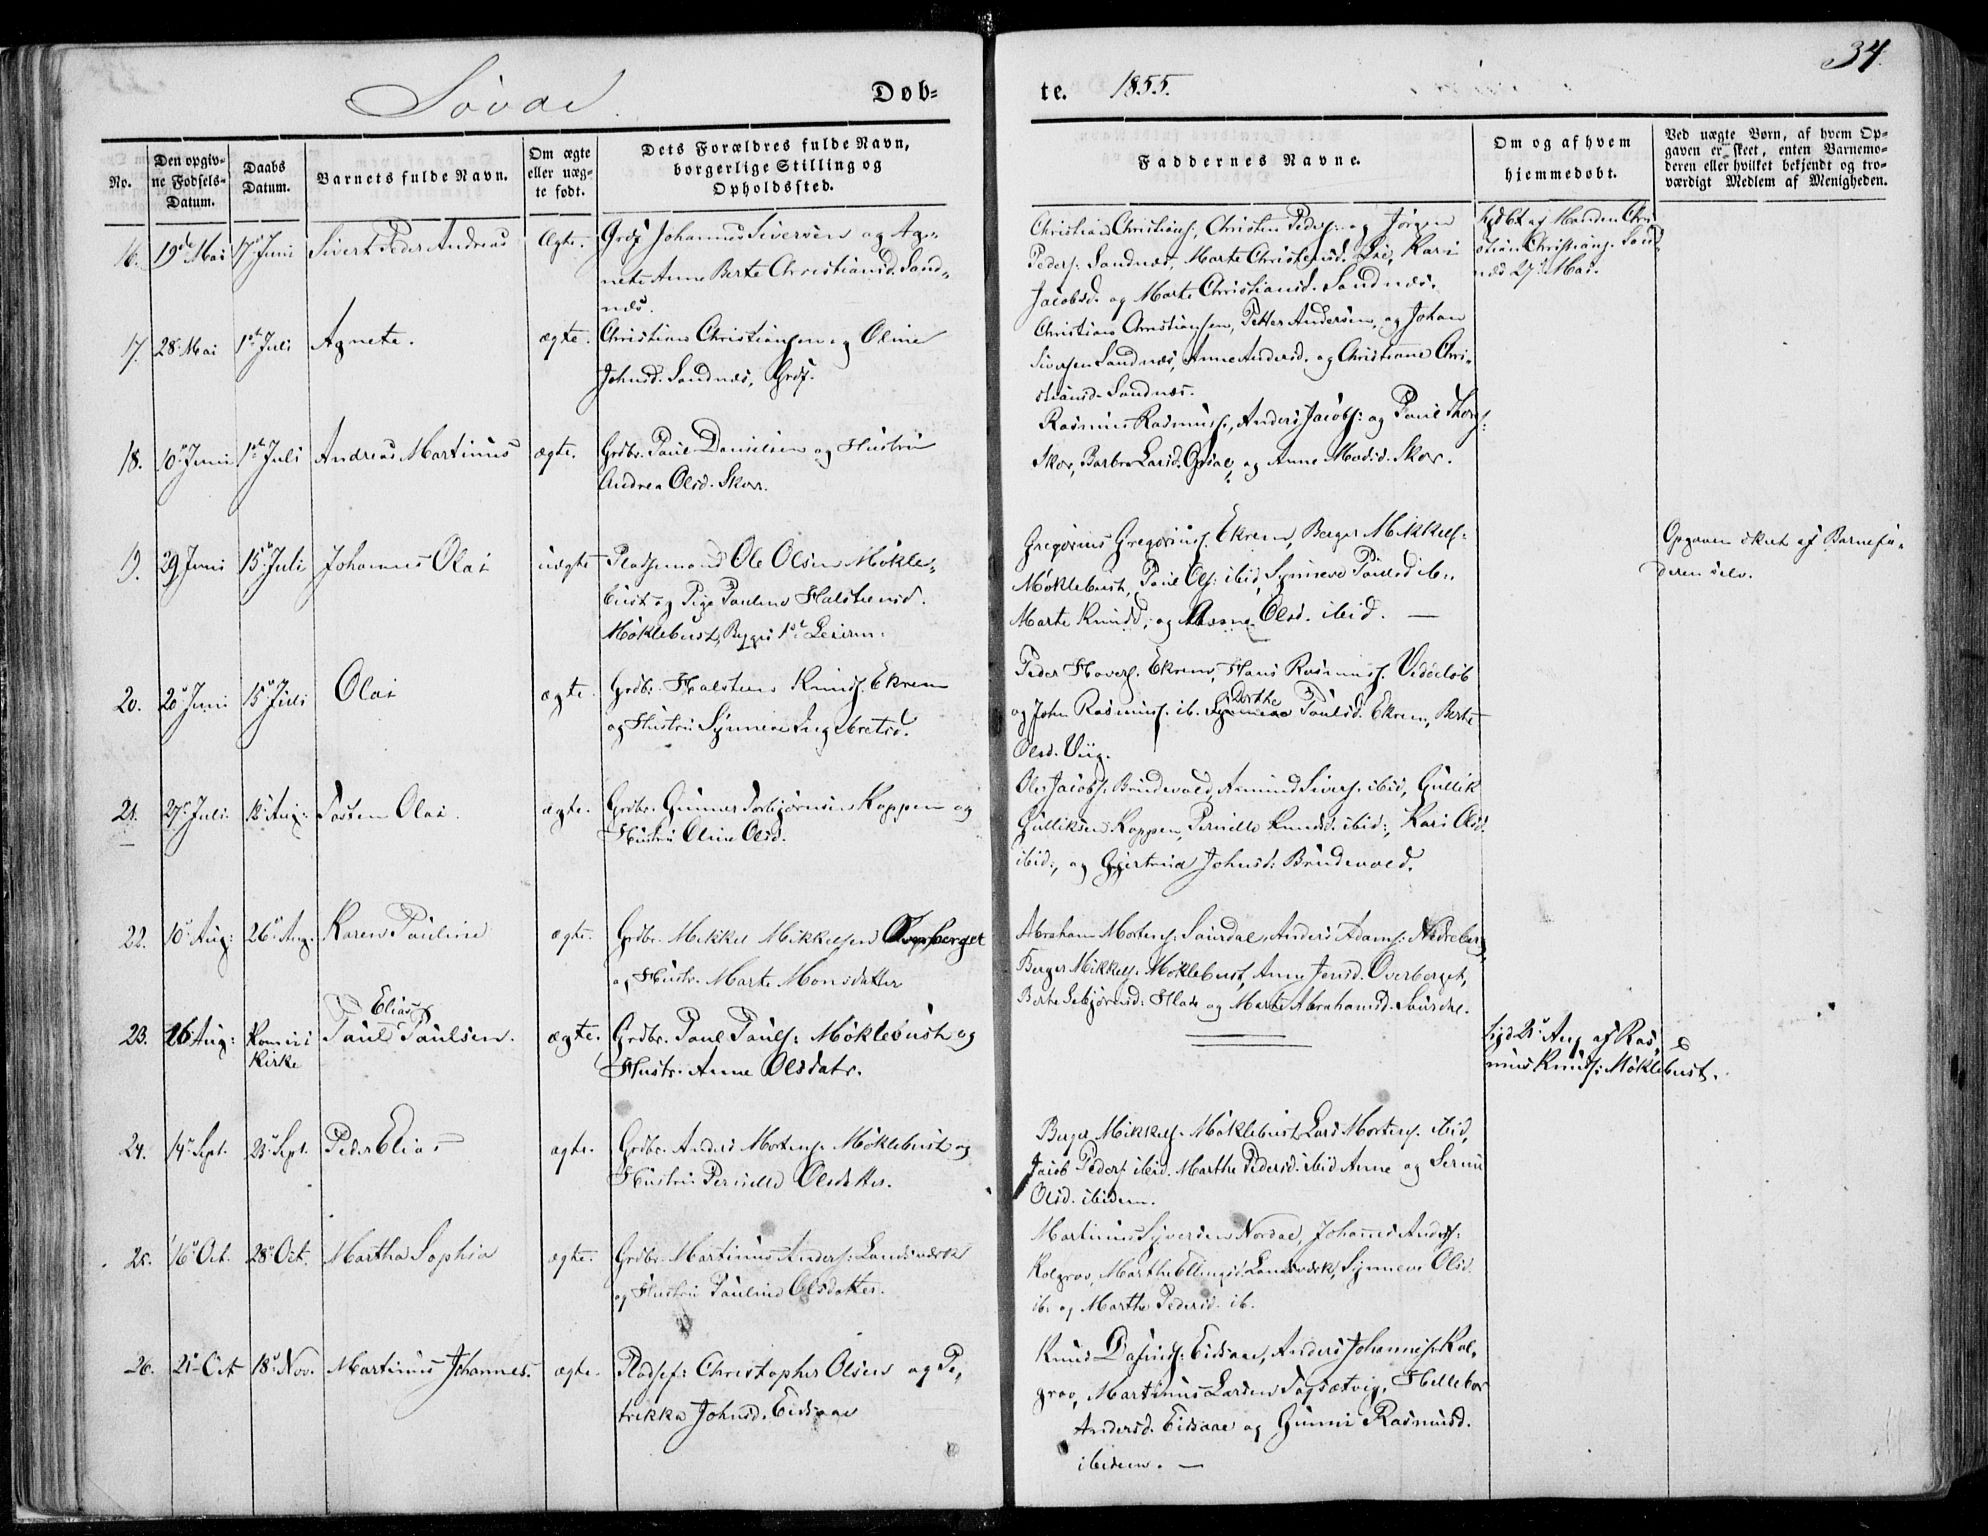 34.
Søvde. Døb=
te. 1855.
No.
Den opgiv=
ne Fødsels=
Datum.
Daabs
Datum.
Barnets fulde Navn.
Om ægte
eller uæg=
te født.
Dets Forældres fulde Navn,
borgerlige Stilling og
Opholdssted.
Faddernes Navne.
Om og af hvem
hjemmedøbt.
Ved uægte Børn, af hvem Op=
gaven er skeet, enten Barnemo=
deren eller hvilket bekjendt og tro=
værdigt Medlem af Menigheden.
16. 19de Mai 17 Juni Sivert Peder Andreas Ægte. Johannes Siversen og Ag=
nete Anne Berte Christiansd. Sand=
næs.
Christian Christians., Christen Peders. og Jørgen
Peders. Sandnæs, Marte Christensd. Kari
Jacobsd. og Marte Christiansd. Sandnæs.
af Manden Chri=
stian Christians. Sand=
næs 27 Mai.
17. 28 Mai 1ste Juli Agnete. ægte. Christian Christiansen og Oline
Johnsd. Sandnæs,
Christian Christiansen, Petter Andersen, og Johan
Siversen Sandnæs, Anne Andersd. og Christiane Chri=
stiansd. Sandnæs.
18. 10 Juni 1ste Juli Andreas Martinus ægte. Grdbr. Paul Danielsen og Hustru
Andrea Olsd. Skor.
Rasmus Rasmuss., Anders Jacobs: og Paul
Skor, Barbro Larsd. og Anne Madsd. Skor.
19. 29 Juni 15 Juli Johannes Olai uægte Pladsemand Ole Olsen Møkle=
bust og Pige Pauline Halstensd.
Møklebust, Begges 1ste Leierm.
Gregorius Gregorius. Ekrem, Berger Mikkels:
Møklebust, Paul Ols: ibid, Synneve Paulsd ib:,
Marte Knudsd, og Anne Olsd. ibid. —
Opgaven skeet af Barnefa=
deren selv.
20. 20 Juni 15 Juli Olai ægte Grdbr. Halsten Knuds. Ekrem
og Hustru Synneve Ingebretsd.
Peder Ekrem, Hans Rasmuss.
og John Rasmuss. ib. Dorthe Paulsd. Ekrem, Berte
Olsd. Viig.
21. 27 Juli Aug: Tosten Olai. ægte. Grdbr. Gunnar Torbjørnsen Koppen og
Hustru Oline Olsd.
Ole Jacobs. Brudevold, Amund Sivers. ibid, Gullik
Gulliksen Koppen, Pernille Knudsd. ibid:, Kari Olsd.
ibid:, og Gjertrud Johnsd: Brudevold.
22. 10 Aug: 26 Aug. Karen Pauline ægte. Grdbr. Mikkel Mikkelsen Overberget
og Hustr. Marte Monsdatter
Abraham Mortens. Saurdal, Anders Adams: Nedreberg,
Berger Mikkels. Møklebust, Anne Jensd. Overberget,
Berte og Marte Abrahamsd. Saurdal.
23. 16 Aug: Kom ei i
Kirke
Elias
Paul Paulsen. ægte. Grdbr. Paul Pauls: Møklebust og
Hustr. Anne Olsdatr.
Aug. af Ras=
mus Knuds: Møklebust.
24. 14 Sept. 23 Sept. Peder Elias ægte. Grdbr. Anders Mortens. Møklebust og
Hustru Pernille Olsdatter.
Berger Mikkels. Møklebust Lars Mortens. ibid,
Jacob Peders. ibid. Marthe Pedersd. ibid Anne og
Olsd. ibidem.
25. 16 Oct. 28 Oct. Martha Sophia ægte. Grdbr. Martinus Anders: Landsværk
og Hustru Pauline Olsdatter.
Martinus Syversen Nordal, Johannes Anders:
Kolgrov, Marthe Ellingsd. Landsværk, Synneve Olsd.
ib. og Marthe Pedersd. ib.
26. 21 Oct 18 Nov. Martinus Johannes. ægte. Pladsef: Christopher Olsen og Pe=
trikka Johnsd. Eidsaae
Knud Eidsaae, Anders Johanness. Kol=
grov, Martinus Larsen Hellebor
Andersd. Eidsaae og Gunni Rasmusd.
ibidem. —